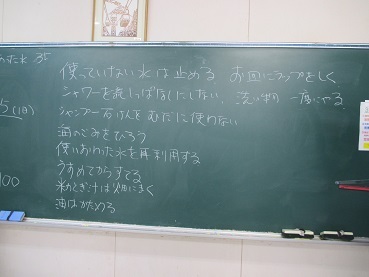 使っていけない水は止める お皿にラップをしく
シャワーを流しっぱなしにしない、洗い物 一度にやる
シャンプー石けんをむだに使わない
海のごみをひろう
使いおわった水を再利用する
うすめてからすてる
米のとぎ汁は畑にまく
油はかためる
35
5(日)
100